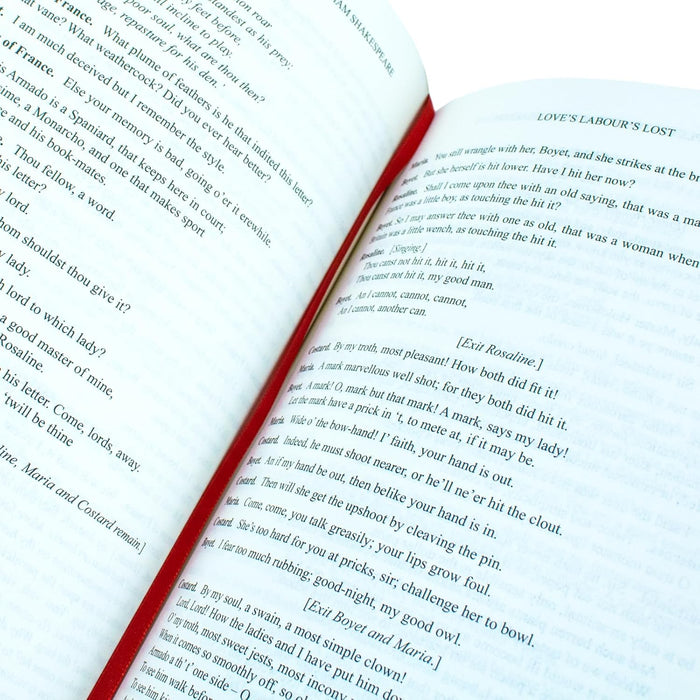 AM SHAKESPEARE
andest on roar
andest as his prey;
y feet before,
ll incline to play.
poor soul, what are thou then?
age, repasture for his den.'
France. What plume of feathers is he that indited this letter?
at vane? What weathercock? Did you ever hear better?
I am much deceived but I remember the style.
of France. Else your memory is bad, going o'er it erewhile.
is Armado is a Spaniard, that keeps here in court;
sime, a Monarcho, and one that makes sport
e and his book-mates.
Thou fellow, a word.
is letter?
y lord.
hom shouldst thou give it?
y lady.
h lord to which lady?
a good master of mine,
Rosaline.
his letter. Come, lords, away.
'twill be thine
line, Maria and Costard remain.]
LOVE'S LABOUR'S LOST
Maria. You still wrangle with her, Boyet, and she strikes at the br
Boyet. But she herself is hit lower. Have I hit her now?
Rosaline. Shall I come upon thee with an old saying, that was a ma
France was a little boy, as touching the hit it?
Boyet. So I may answer thee with one as old, that was a woman when
Britain was a little wench, as touching the hit it.
Rosaline. [Singing.]
Thou canst not hit it, hit it, hit it,
Thou canst not hit it, my good man.
Boyet. An I cannot, cannot, cannot,
An I cannot, another can.
[Exit Rosaline.]
Costard. By my troth, most pleasant! How both did fit it!
Maria. A mark marvellous well shot; for they both did hit it.
Boyet. A mark! O, mark but that mark! A mark, says my lady!
Let the mark have a prick in 't, to mete at, if it may be.
Maria. Wide o' the bow-hand! I' faith, your hand is out.
Costard. Indeed, he must shoot nearer, or he'll ne'er hit the clout.
Boyet. An if my hand be out, then belike your hand is in.
Costard. Then will she get the upshoot by cleaving the pin.
Maria. Come, come, you talk greasily; your lips grow foul.
Costard. She's too hard for you at pricks, sir; challenge her to bowl.
Boyet. I fear too much rubbing; good-night, my good owl.
[Exit Boyet and Maria.]
Costard. By my soul, a swain, a most simple clown!
Lord, Lord! How the ladies and I have put him down
O' my troth, most sweet jests, most incony v
When it comes so smoothly off, so o
Armado a th' t' one side – O
To see him walk before
To see him kis